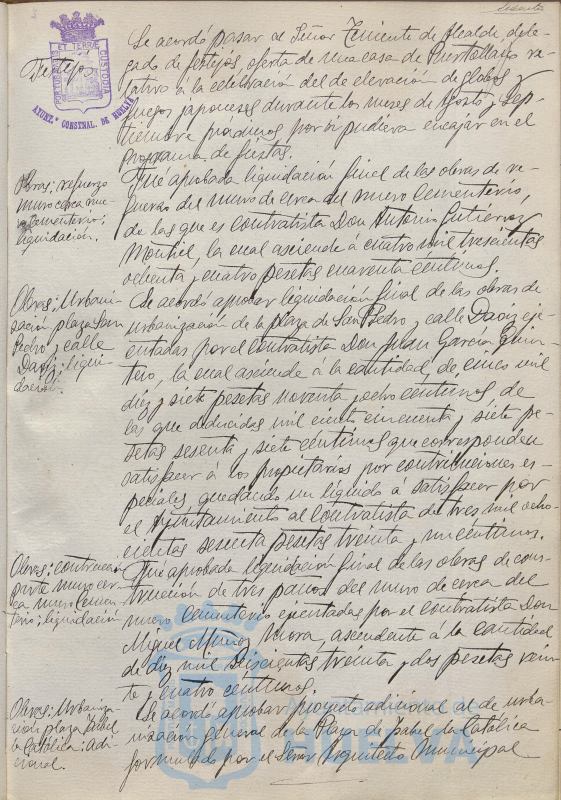 Sesenta
PORTUS MARIS ET TERRÆ CUSTODIA
AYUNT.º CONSTNAL. DE HUELVA
Festejos
Se acordó pasar al Señor Teniente de Alcalde, dele-
gado de festejos, oferta de una casa de Puertollano re-
lativo á la celebración del de elevación de globos y
juegos japoneses durante los meses de Agosto y Sep-
tiembre próximos por si pudiera encajar en el
Programa de fiestas.
Obras; refuerzo
muro cerca nue-
vo Cementerio;
liquidación.
Fué aprobada liquidación final de las obras de re-
fuerzo del muro de cerca del nuevo Cementerio,
de las que es contratista Don Antonio Gutierrez
Montiel, la cual asciende á cuatro mil trescientas
ochenta y cuatro pesetas cuarenta céntimos.
Obras; Urbani-
zación plaza San
Pedro y calle
Daoiz; liqui-
dación.
Se acordó aprobar liquidación final de las obras de
urbanización de la plaza de San Pedro y calle Daoiz eje-
cutadas por el contratista Don Juan Garcia Quin-
tero, la cual asciende á la cantidad de cinco mil
diez y siete pesetas noventa y ocho céntimos, de
las que deducidas mil ciento cincuenta y siete pe-
setas sesenta y siete céntimos que corresponden
satisfacer á los propietarios por contribuciones es-
peciales quedando un líquido á satisfacer por
el Ayuntamiento al contratista de tres mil ocho-
cientas sesenta pesetas treinta y un céntimos.
Obras; construcción
parte muro cer-
ca nuevo Cemen-
terio; liquidación
Fué aprobada liquidación final de las obras de cons-
trucción de tres paños del muro de cerca del
nuevo Cementerio ejecutadas por el contratista Don
Miguel Muñoz Mora, ascendente á la cantidad
de diez mil seiscientas treinta y dos pesetas vein-
te y cuatro céntimos.
Obras; Urbaniza-
ción plaza Isabel
la Católica; Adi-
cional.
Se acordó aprobar proyecto adicional al de urba-
nización general de la Plaza de Isabel la Católica
formulado por el Señor Arquitecto Municipal
Ayuntamiento de
HUELVA